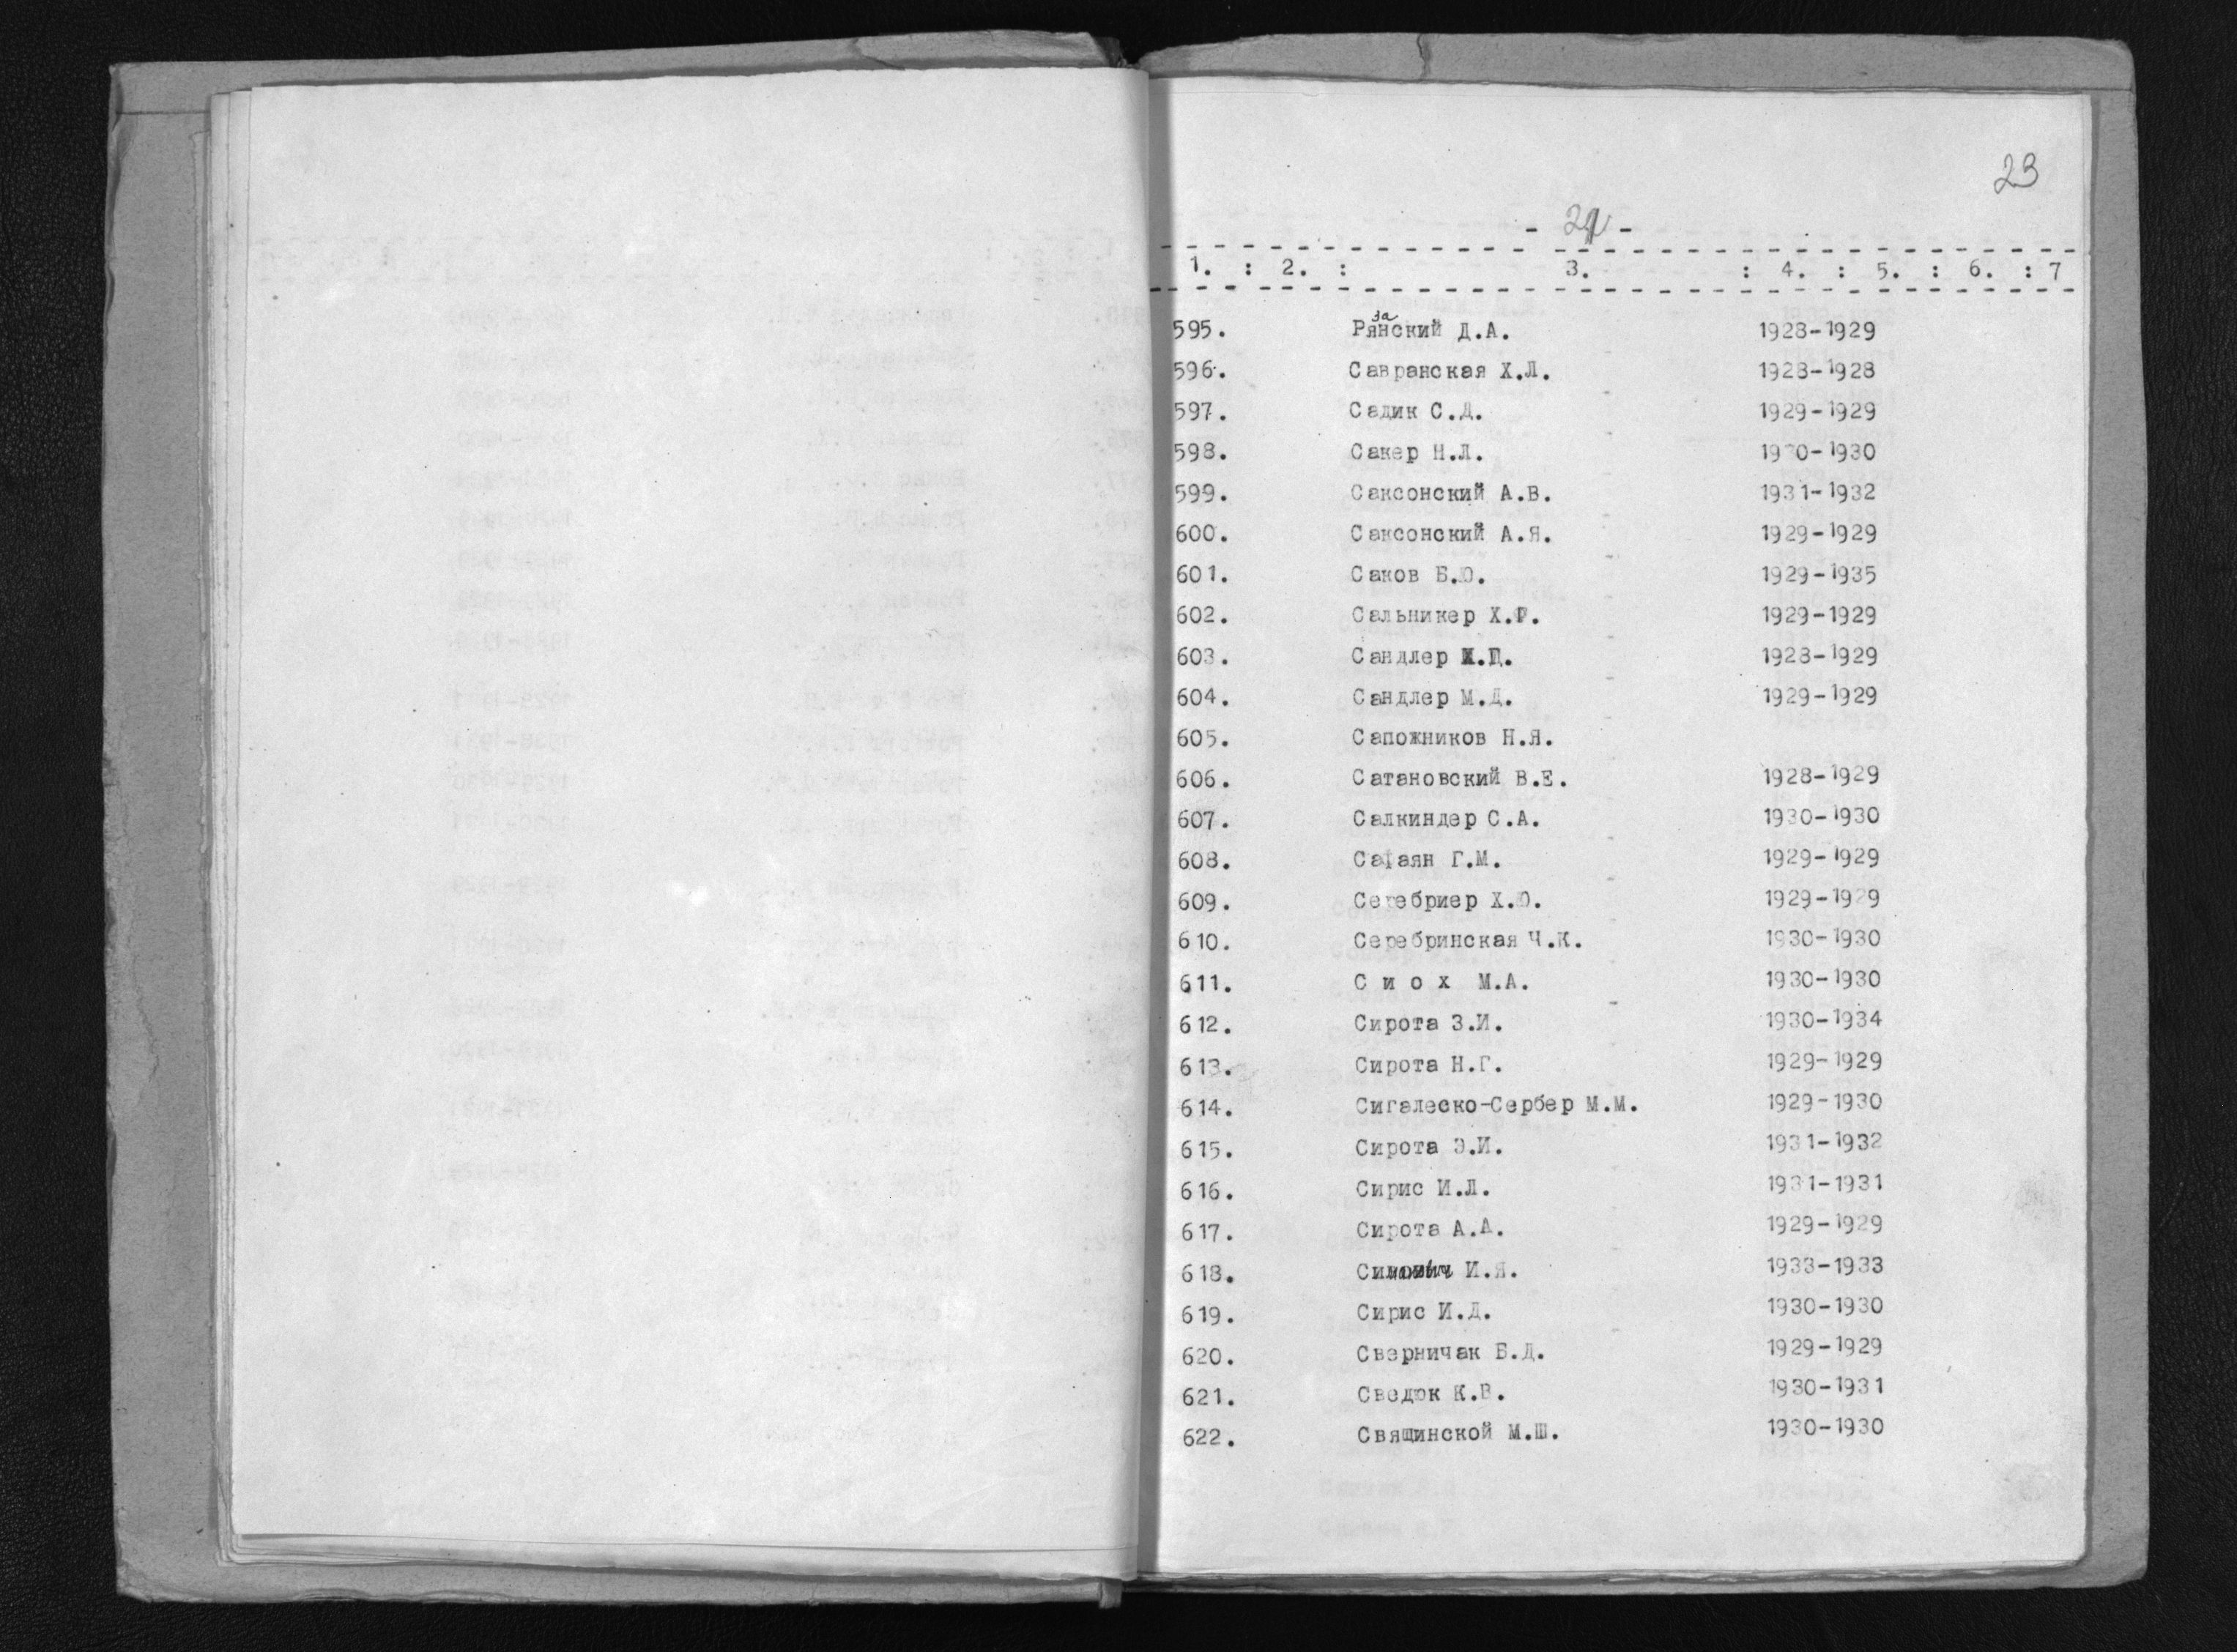 23
1. : 2. : 3. : 4. : 5. : 6. : 7
595. Рязанский Д.А. 1928-1929
596. Савранская Х.Л. 1928-1928
597. Садик С.Д. 1929-1929
598. Сакер Н.Л. 1930-1930
599. Саксонский А.В. 1931-1932
600. Саксонский А.Я. 1929-1929
601. Саков Б.Ю. 1929-1935
602. Сальникер Х. 1929-1929
603. Сандлер 1928-1929
604. Сандлер М.Д. 1929-1929
605. Сапожников Н.Я.
606. Сатановский В.Е. 1928-1929
607. Салкиндер С.А. 1930-1930
608. Г.М. 1929-1929
609. Серебриер Х.Ю. 1929-1929
610. Серебринская Ч.К. 1930-1930
611. С и о х М.А. 1930-1930
612. Сирота З.И. 1930-1934
613. Сирота Н.Г. 1929-1929
614. Сигалеско-Сербер М.М. 1929-1930
615. Сирота Э.И. 1931-1932
616. Сирис И.Л. 1931-1931
617. Сирота А.А. 1929-1929
618. И.Я. 1933-1933
619. Сирис И.Д. 1930-1930
620. Сверничак Б.Д. 1929-1929
621. Сведюк К.В. 1930-1931
622. Свящинской М.Ш. 1930-1930